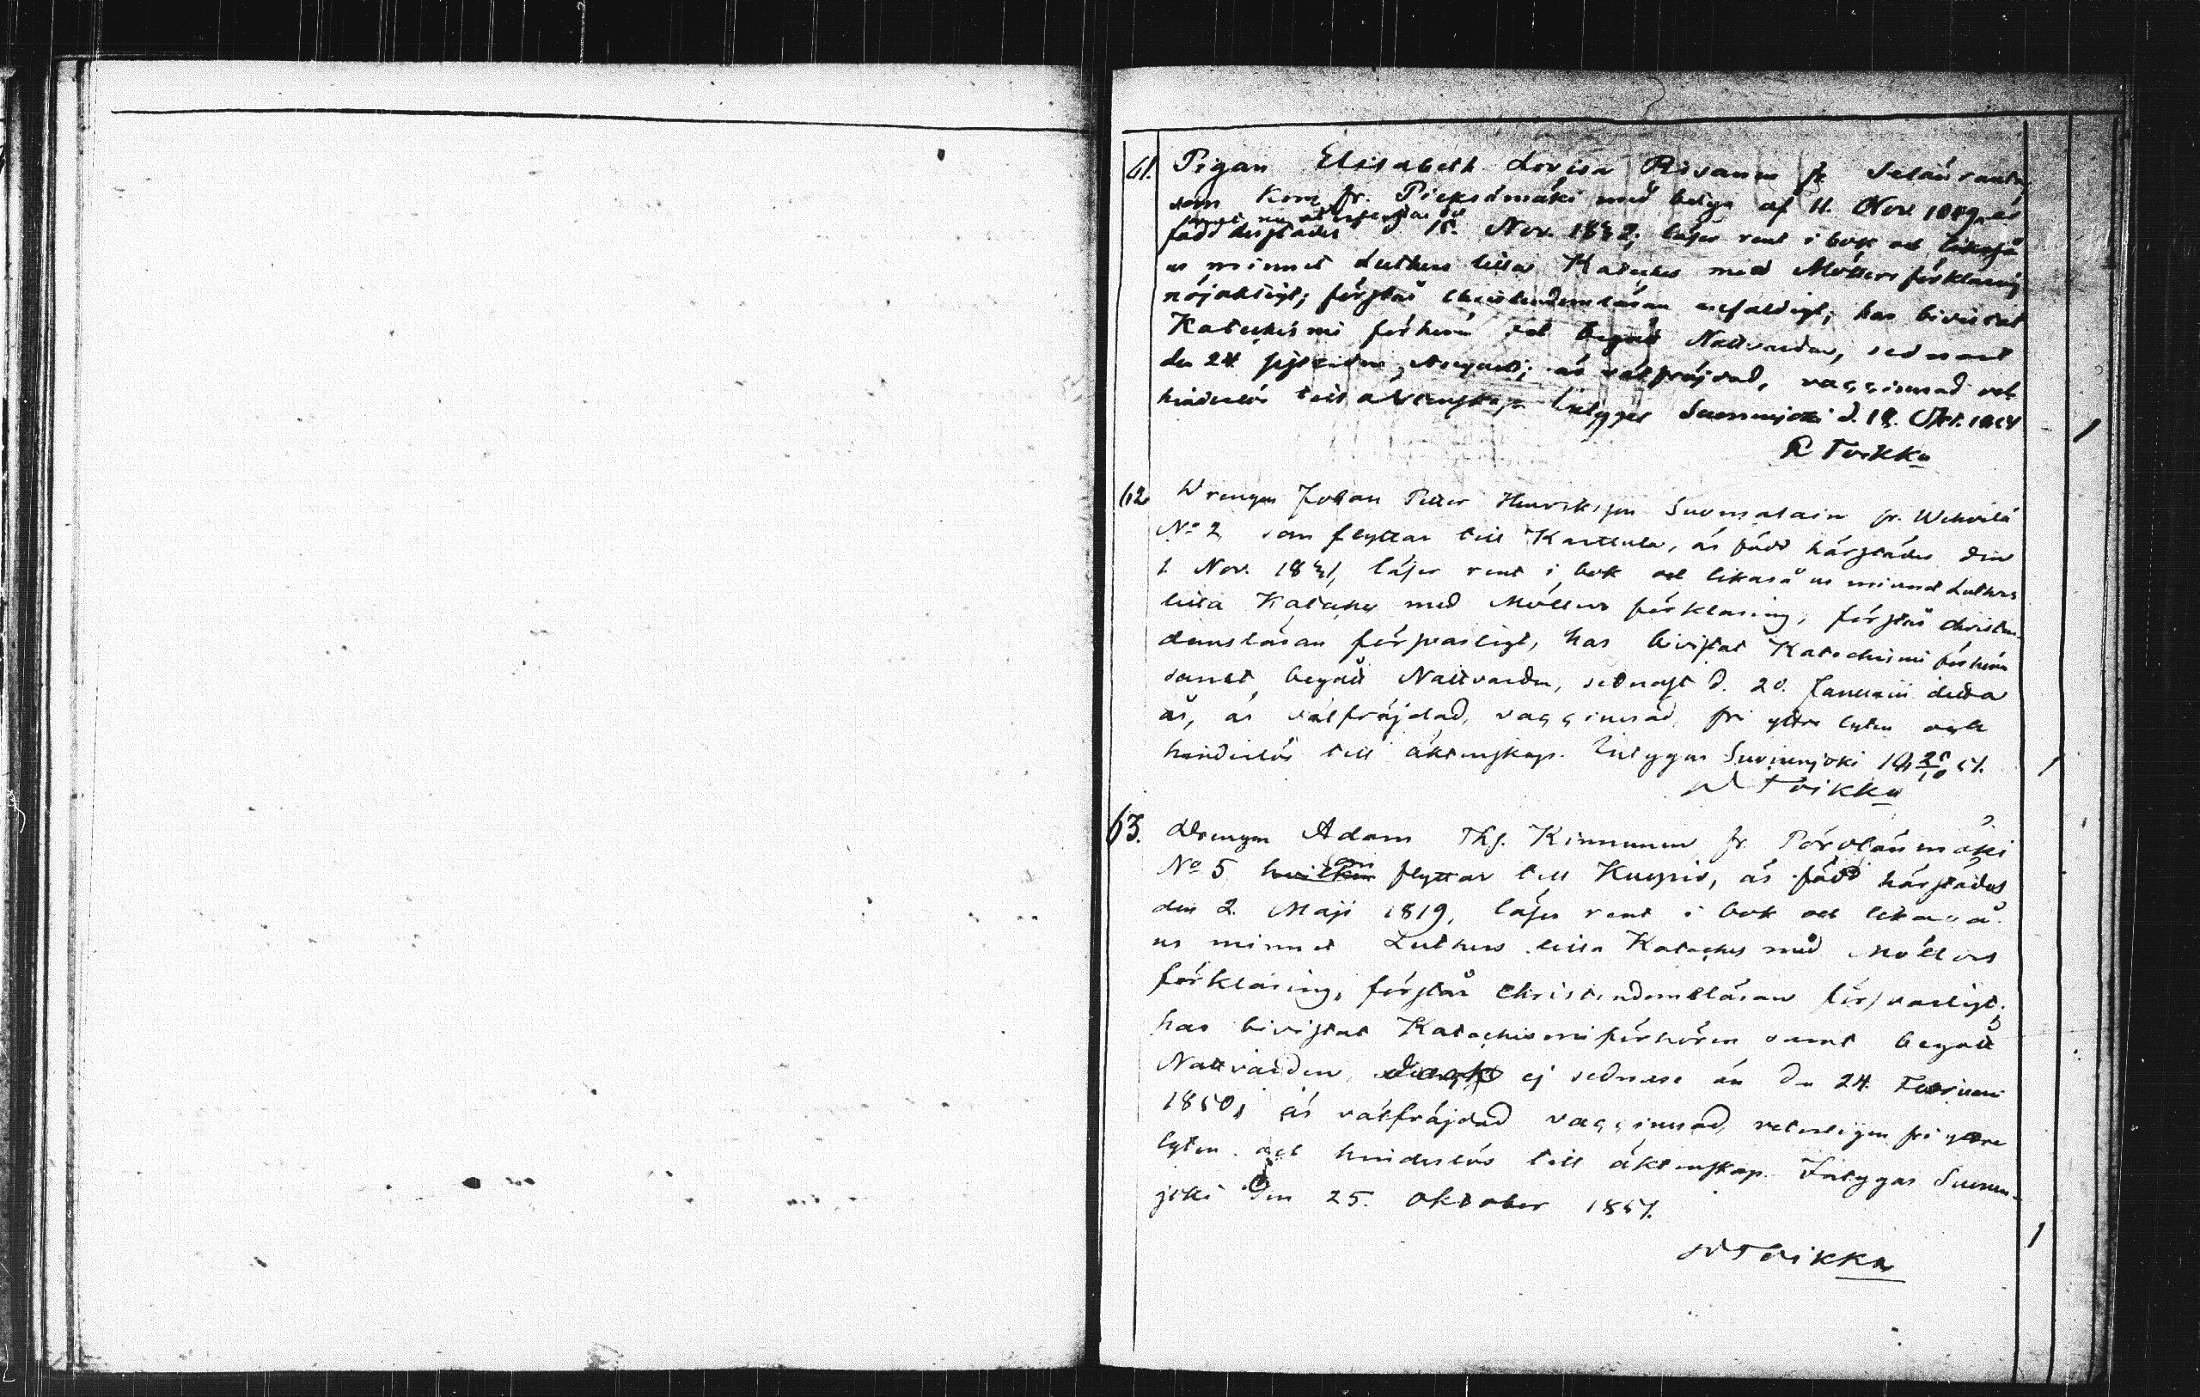 61. Pigan Elisabeth Lovisa Risanen fr Selänranta,
som kom fr. Pieksämäki med betyg af 11. Nov. 1849, är
samt nu återvänder dit
född derstädes d. 15. Nov. 1832; läser rent i bok och likaså
ur minnet Luthers lilla Kateches med Möllers förklaring
nöjaktigt; förstår christendomsläran enfaldigt; har bivistat
Katechismi förhören och begått Nattvarden, sednast
den 24 sistledne Augusti; är välfräjdad, vaccinerad och
hinderlös till äktenskap. Intygas Suonenjoki d. 18. Okt. 1851
R Toikka
62. Drengen Johan Petter Henriksson Suomalain fr. Wehvilä
No 2 som flyttar till Karttula, är född härstädes den
1. Nov. 1831, läser rent i bok och likaså ur minnet Luthers
lilla Kateches med Möllers förklaring, förstår christen-
domsläran försvarligt, har bivistat Katechismi förhören
samt begått Nattvarden, sednast d. 20. Januarii detta
år, är välfräjdad, vaccinerad, fri yttre lyten och
hinderlös till äktenskap. Intygas Suonenjoki 18 25/10 51.
R Toikka
63. Drengen Adam Ths. Kinnunen fr. Pörölänmäki
No 5 hvilken som flyttar till Kuopio, är född härstädes
den 2. Maji 1819, läser rent i bok och likaså
ur minnet Luthers lilla Kateches med Möllers
förklaring, förstår Christendomsläran försvarligt;
har bivistat Katechismi förhören samt begått
Nattvarden, ej sednare än den 24. Februari
1850, är välfräjdad vaccinerad, veterligen fri yttre
lyten och hinderlös till äktenskap. Intygas Suonen-
joki den 25. Oktober 1851.
R Toikka